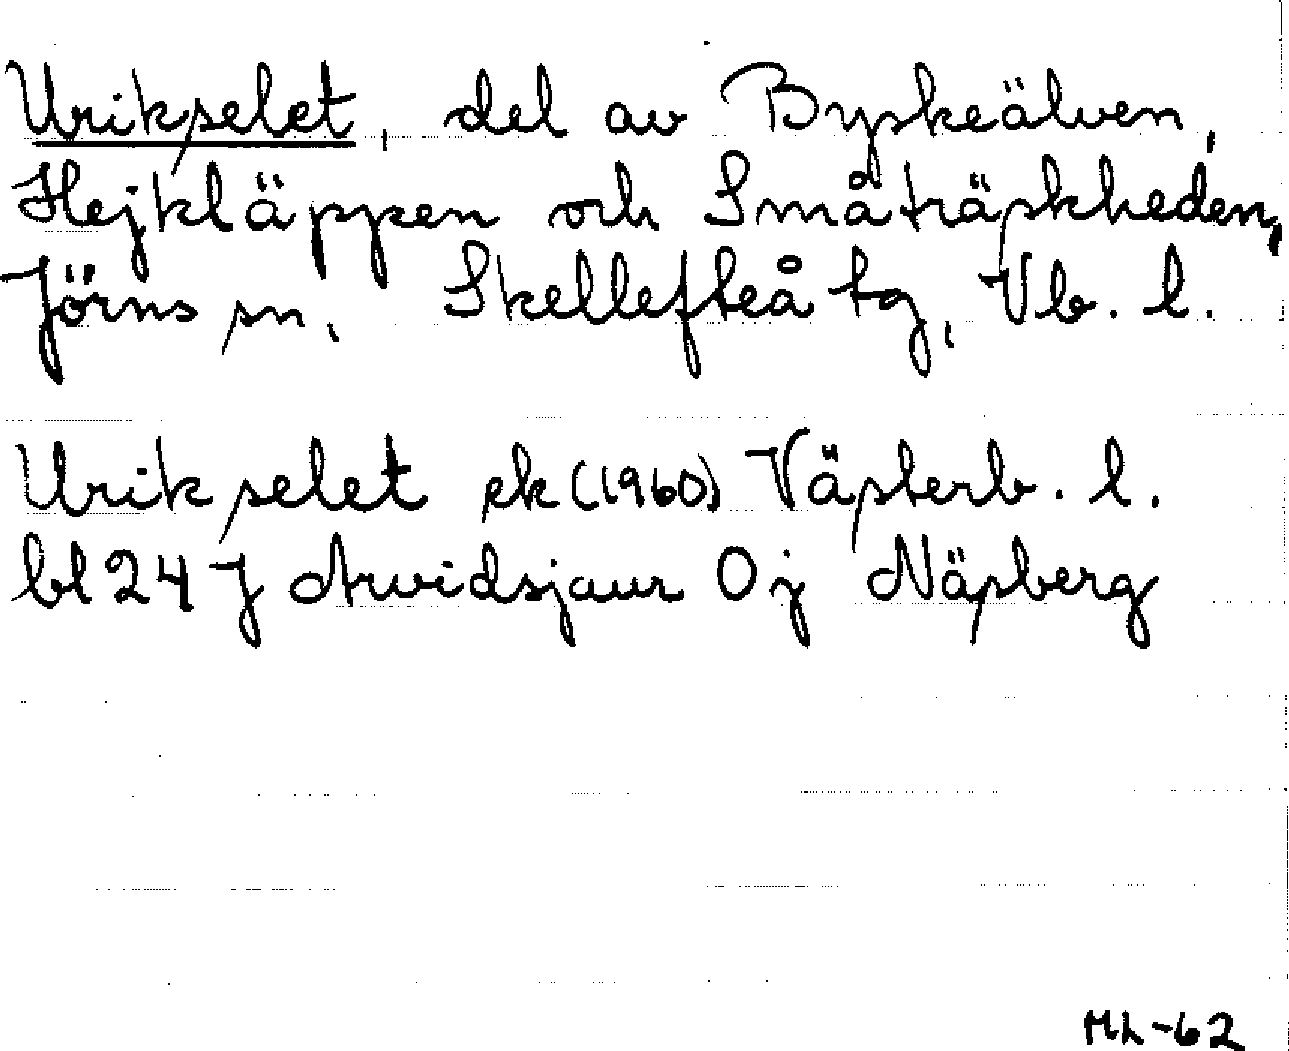 Urikselet, del av Byskeälven,
Hejkläppen och Småträskheden,
Jörns sn, Skellefteå tg, Vb. l.
Urikselet ek (1960) Västerb. l.
bl 24 J Arvidsjaur Oj Näsberg
ML-62